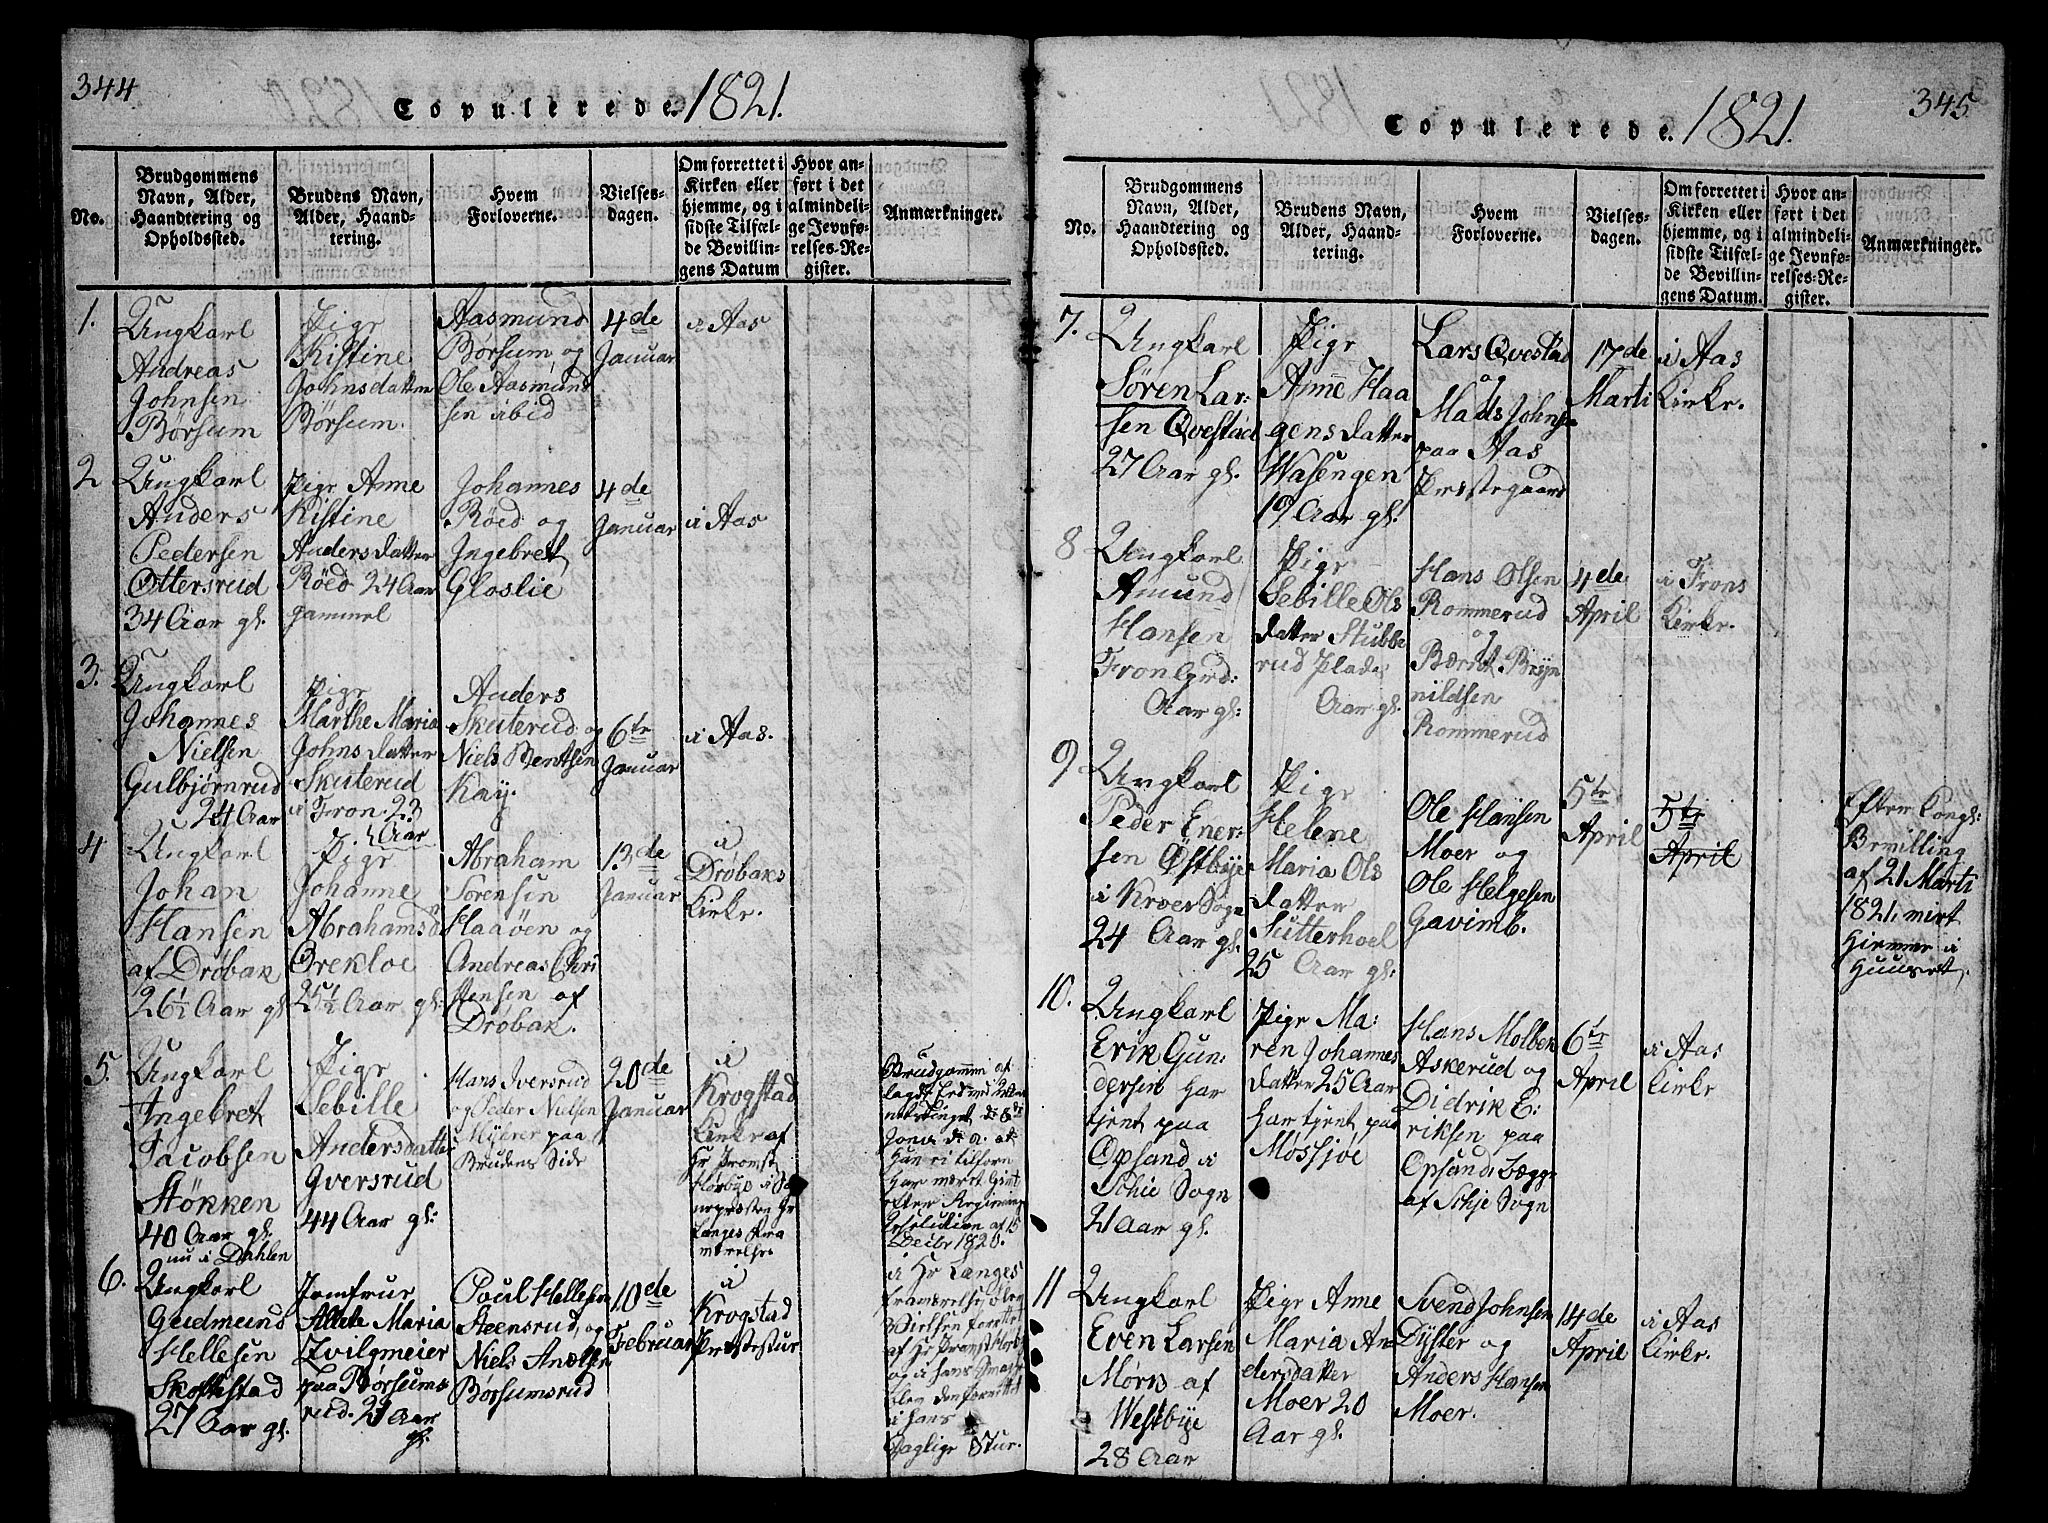 344
Copulerede. 1821.
No.
Brudgommens
Navn, Alder,
Haandtering og
Opholdssted.
Brudens Navn,
Alder, Haand-
tering.
Hvem
Forloverne.
Vielses-
dagen.
Om forrettet i
Kirken eller
hjemme, og i
sidste Tilfæl-
de Bevillin-
gens Datum
Hvor an-
ført i det
almindeli-
ge Jevnfø-
relses-Re-
gister.
Anmærkninger.
1.
Ungkarl
Andreas
Johnsen
Børsum
Pige
Kistine
Johnsdatter
Børsum.
Aasmund
Børsum og
Ole Aasmund
sen ibid
4de
Januar
i Aas
2
Ungkarl
Anders
Pedersen
Ottersrud
34 Aar gl.
Pige Anne
Kistine
Andersdatter
Røed 24 Aar
gammel
Johannes
Røed og
Ingebret
Gloslie
4de
Januar
i Aas
3.
Ungkarl
Johannes
Nielsen
Gulbjørnrud
24 Aar
Pige
Marthe Maria
Johnsdatter
Skuterud
i Fron 23
Aar
Anders
Skuterud og
Niels Bentsen
Kay.
6te
Januar
i Aas.
4
Ungkarl
Johan
Hansen
af Drøbak
26½ Aar gl
Pige
Johanne
Abrahamsd
Grekloe
25½ Aar gl:
Abraham
Sorensen
Haaven og
Andreas Chri
stensen af
Drøbak.
13de
Januar
i
Drøbaks
Kirke.
5.
Ungkarl
Ingebret
Jacobsen
Støkken
40 Aar gl.
nu i Dahlen
Pige
Sebille
Andersdatte
Iversrud
44 Aar gl:
Hans Iversrud
og Peder Nielsen
Myhrer paa
Brudens Side
20de
Januar
i
Krogstad
Kirke af
Hr Promst
Hørbye i
Hr
Langes Fra
værelse
Brudgommen af
lagde Eed ved
tinget d: 8de
d. a. at
Han ei tilforn
har været Givt
efter Regjerings
Resolution af 15
Decbr 1820.
i Hr Langes
Fraværelse blev
Vielsen forettet
af Hr Promst Hørb
og i hans
blev den forrettet
i hans
Daglige Stue.
6.
Ungkarl
Gudmund
Hellesen
Skoftestad
27 Aar gl.
Jomfrue
Allete Maria
Zvilgmeier
paa Børsums
rud. 21 Aar
gl.
Poul Hellesen
Steensrud, og
Niels
Børsumsrud
10de
Februar
i
Krogstad
Præstestue
345
Copulerede. 1821.
No.
Brudgommens
Navn, Alder,
Haandtering og
Opholdssted.
Brudens Navn,
Alder, Haand-
tering.
Hvem
Forloverne.
Vielses-
dagen.
Om forrettet i
Kirken eller
hjemme, og i
sidste Tilfæl-
de Bevillin-
gens Datum.
Hvor an-
ført i det
almindeli-
ge Jevnfø-
relses-Re-
gister.
Anmærkninger.
7.
Ungkarl
Søren Lar:
sen Qvestad
27 Aar gl.
Pige
Anne Haa
gensdatter
Wasengen
19 Aar gl.
Lars Qvestad
og
Mads Johnse
paa Aas
Præstegaard
17de
Marti
i Aas
Kirke.
8
Ungkarl
Amund
Hansen
Fron Grd:
Aar gl:
Pige
Sebille Ols
datter Stubbe
rud Plads
Aar gl.
Hans Olsen
Rommerud
og
Bæret Bryn
nildsen
Rommerud
4de
April
i Frons
Kirke.
9
Ungkarl
Peder Ener:
sen Østbye
i Kroer Sogn
24 Aar gl.
Pige
Helene
Maria Ols
datter
Sutterhoel
25 Aar gl:
Ole Hansen
Moer og
Ole Helgesen
Gavimb.
5te
April
5te
April
Efter Kongl:
Bevilling
af 21 Marti
1821, viet
Hiemme i
Huuset.
10.
Ungkarl
Erik Gun:
dersen har
tjent paa
Opsand i
Schie Sogn
21 Aar gl.
Pige Ma:
ren Johannes
datter 25 Aar
har tjent paa
Mossjøe
Hans Molbek
Askerud og
Didrik E:
riksen paa
Opsand: begge
af Schje Sogn
6te
April
i Aas
Kirke
11
Ungkarl
Even Larsen
Mørk af
Westbye
28 Aar
Pige Anne
Maria An
dersdatter
Moer 20
Aar gl.
Svend Johnsen
Dyster og
Anders Hansen
Moer.
14de
April
i Aas
Kirke.